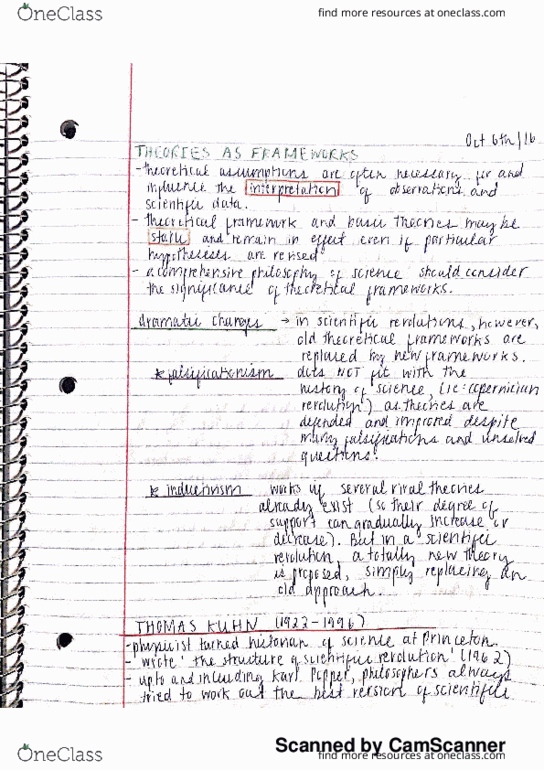 OneClass
find more resources at oneclass.com
Oct 6th/16
THEORIES AS FRAMEWORKS
- theoretical assumptions are often necessary for and
influence the interpretation of observations and
scientific data.
- theoretical framework and basic theories may be
static and remain in effect even if particular
hypotheses are revised
- a comprehensive philosophy of science should consider
the significance of theoretical frameworks.
dramatic changes → in scientific revolutions, however,
old theoretical frameworks are
replaced by new frameworks.
* falsificationism does NOT fit with the
history of science, (ie: copernician
revolution') as theories are
defended and improved despite
many falsifications and unsolved
questions!
* inductivism works if several rival theories
already exist (so their degree of
support can gradually increase or
decrease). But in a scientific
revolution, a totally new theory
is proposed, simply replacing an
old approach.
THOMAS KUHN (1922-1996)
- physicist turned historian of science at Princeton.
- wrote 'the structure of scientific revolution' (1962)
- up to and including Karl Popper, philosophers always
tried to work out the best version of scientific
Scanned by CamScanner
OneClass
find more resources at oneclass.com